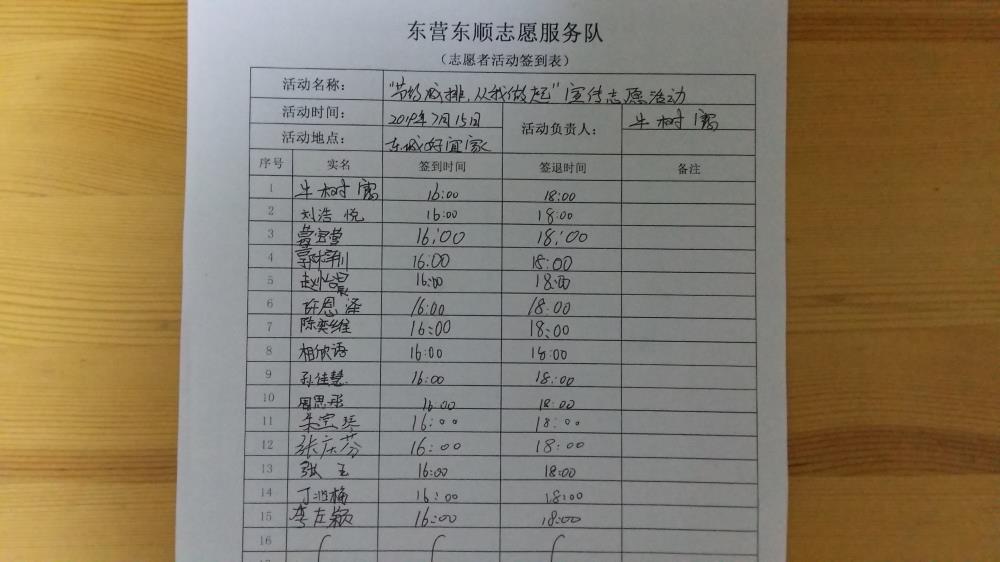 东营东顺志愿服务队
（志愿者活动签到表）
活动名称： "节约减排，从我做起"宣传志愿活动
活动时间： 2019年7月15日 活动负责人： 牛树富
活动地点： 东城好宜家
序号 实名 签到时间 签退时间 备注
1 牛树富 16:00 18:00
2 刘浩悦 16:00 18:00
3 16:00 18:00
4 16:00 18:00
5 赵怡晨 16:00 18:00
6 许恩泽 16:00 18:00
7 陈奕维 16:00 18:00
8 相欣语 16:00 18:00
9 孙佳慧 16:00 18:00
10 周思彤 16:00 18:00
11 朱宝琴 16:00 18:00
12 张庆芬 16:00 18:00
13 张玉 16:00 18:00
14 丁 梅 16:00 18:00
15 李在颖 16:00 18:00
16